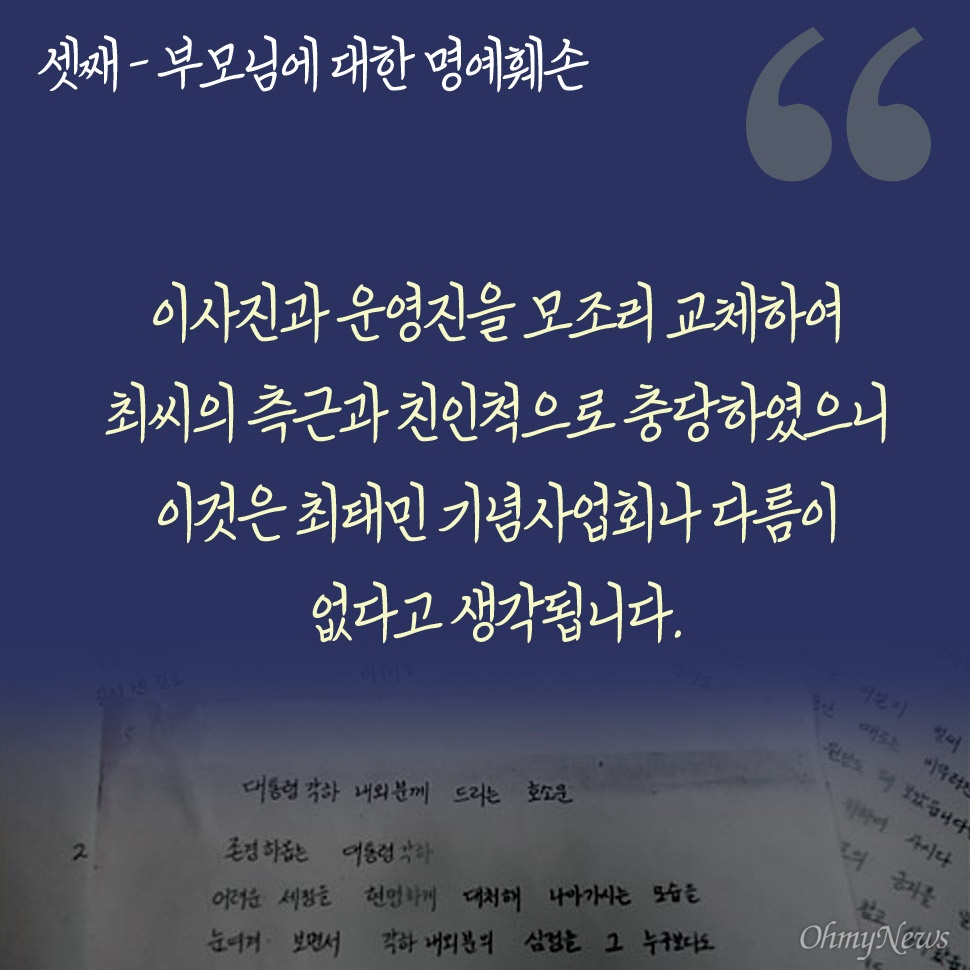 셋째 - 부모님에 대한 명예훼손
이사진과 운영진을 모조리 교체하여
최씨의 측근과 친인척으로 충당하였으니
이것은 최태민 기념사업회나 다름이
없다고 생각됩니다.
대통령 각하 내외분께 드리는 호소문
2
존경하옵는 대통령 각하
어려운 세정을 현명하게 대처해 나아가시는 모습을
눈여겨 보면서 각하 내외분의 심정을 그 누구보다도
OhmyNews